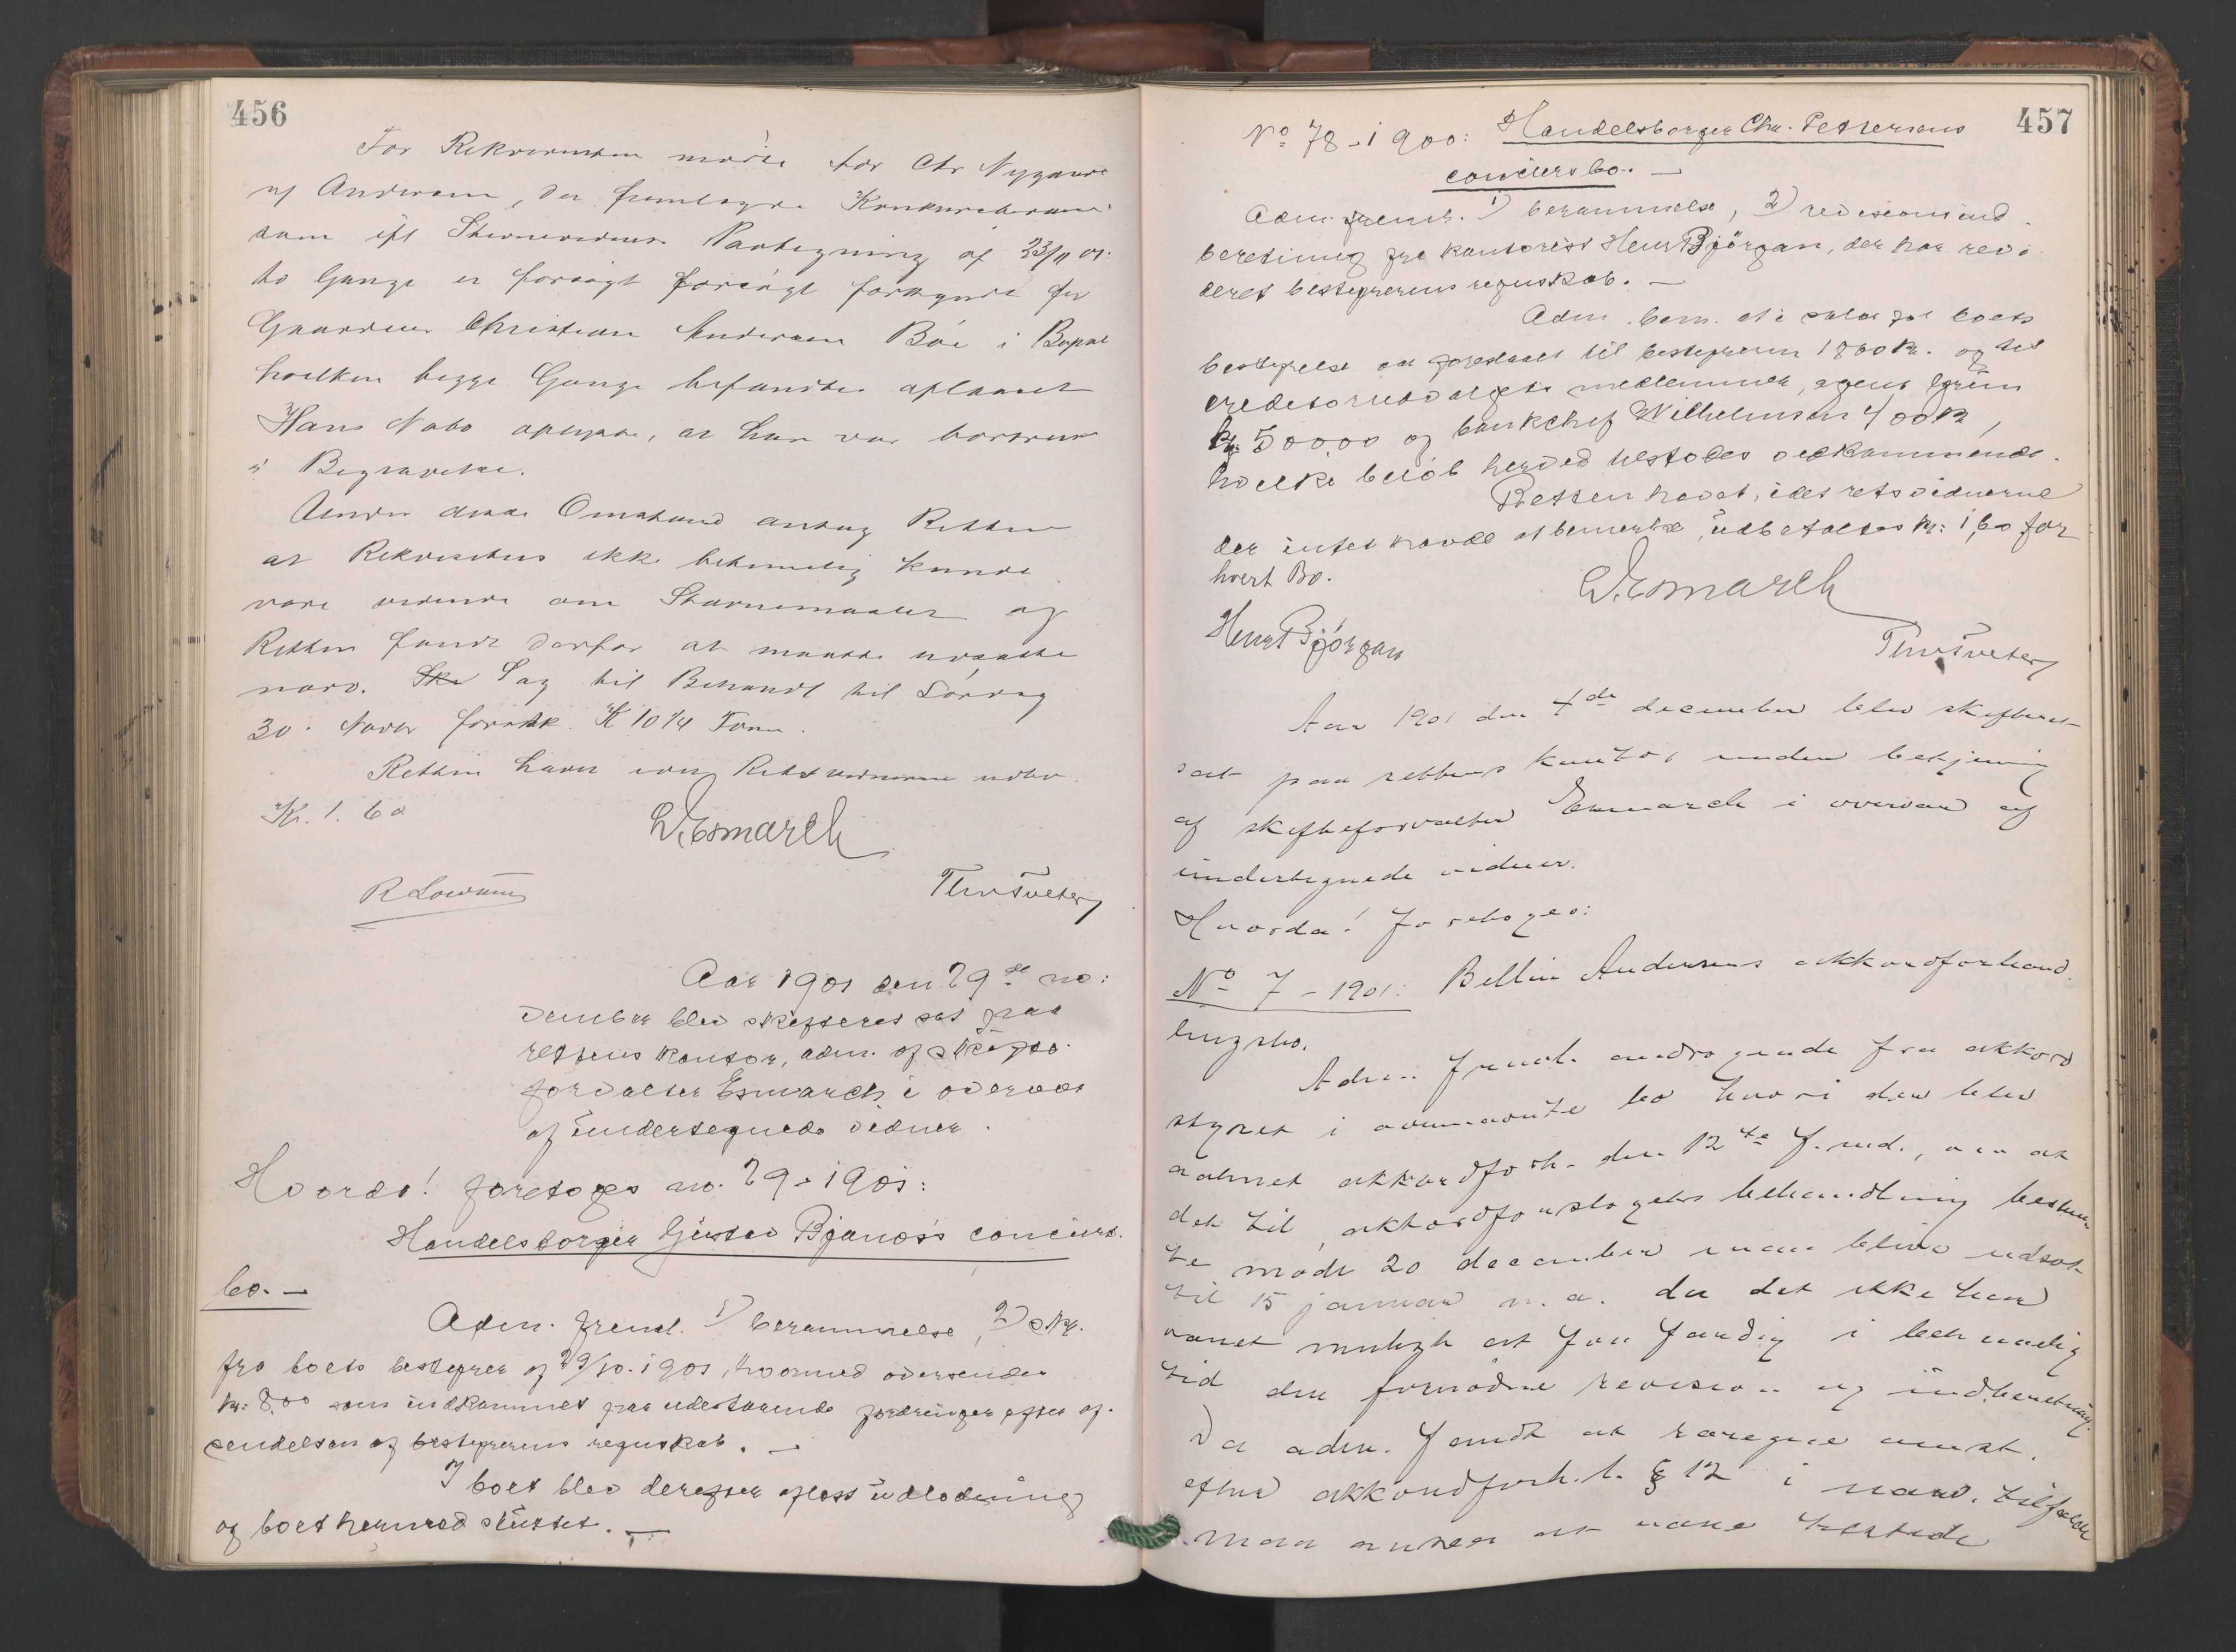 456
For Rekvirenten mödte for Chr Nygaard
ved Andersen, der fremlagde Konkursbegjær
som ifl Stevnevidnernes Paategning af 23/11 01
to Gange er forsögt forsögt forkyndt for
Gaardbr Christian Andersen Böe i
hvilken begge Gange befandtes aflaaset
Hans Nabo oplyste, at han var bortreist
i Begravelse.
Under disse Omstænd antog Retten
at Rekvisitus ikke betimelig kunde
være vidende om Stævnemaalet og
Retten fandt derfor at maatte udsætte
nærv. Ske Sag til Behandl til Lördag
30. Novbr förstk. Kl 10 1/4 Form.
Retten hævet idet Retsvidnerne udbet.
Kr. 1. 60
Esmarch
Thv Tveter
Aar 1901 den 29de no:
vember blev skifteret sat paa
rettens kontor, adm. af skifte-
forvalter Esmarch i overvær
af undertegnede vidner.
Hvorda! foretoges no. 29-1901:
Handelsborger Gustav concurs.
bo. —
Adm. freml. 1) berammelse, 2) skr.
fra boets bestyrer af 29/10-1901, hvormed oversendes
kr: 8.00 som indkommet paa udestaaende fordringer efter af-
sendelsen af bestyrerens regnskab. —
I boet blev derefter aflæst udlodning
og boet hermed sluttet. —
457
No 78-1900: Handelsborger Chr. Pettersens
concursbo. —
Adm. freml. 1) berammelse, 2) revisions ind
beretning fra kontorist Henr Björgan, der har revi
deret bestyrerens regnskab. —
Adm. bem. at i salær for boets
bestyrelse var foreslaaet til bestyreren 1800 kr. og til
creditorudvalgets medlemmer, agent
kr 500.00 og bankchef Wilhelmsen 400 kr,
hvilke belöb herved tilstodes vedkommende.
Retten hævet, idet retsvidnerne
der intet havde at bemerke, udbetaltes kr: 1,60 for
hvert Bo.
Esmarch
Henr Björgan
Thv Tveter
Aar 1901 den 4de december blev skifteret
sat paa rettens kontor under betjening
af skifteforvalter Esmarch i overvær af
undertegnede vidner.
Hvorda! foretoges:
No 7 - 1901: Andersens akkordforhand
lingsbo.
Adm. freml. andragende fra akkord
styret i ovennævnte bo hvori der blev
aabnet akkordforh. den 12te f. md., om at
det til akkordforslagets behandling bestem
te möde 20 december maa blive udsat
til 15 januar n. a. da det ikke har
været muligt at faa færdig i betimelig
tid den fornödne revision og indberetning.
Da adm. fandt at
efter akkordforh. l. § 12 i nærv. tilfælde
maa ansees at være tilstede